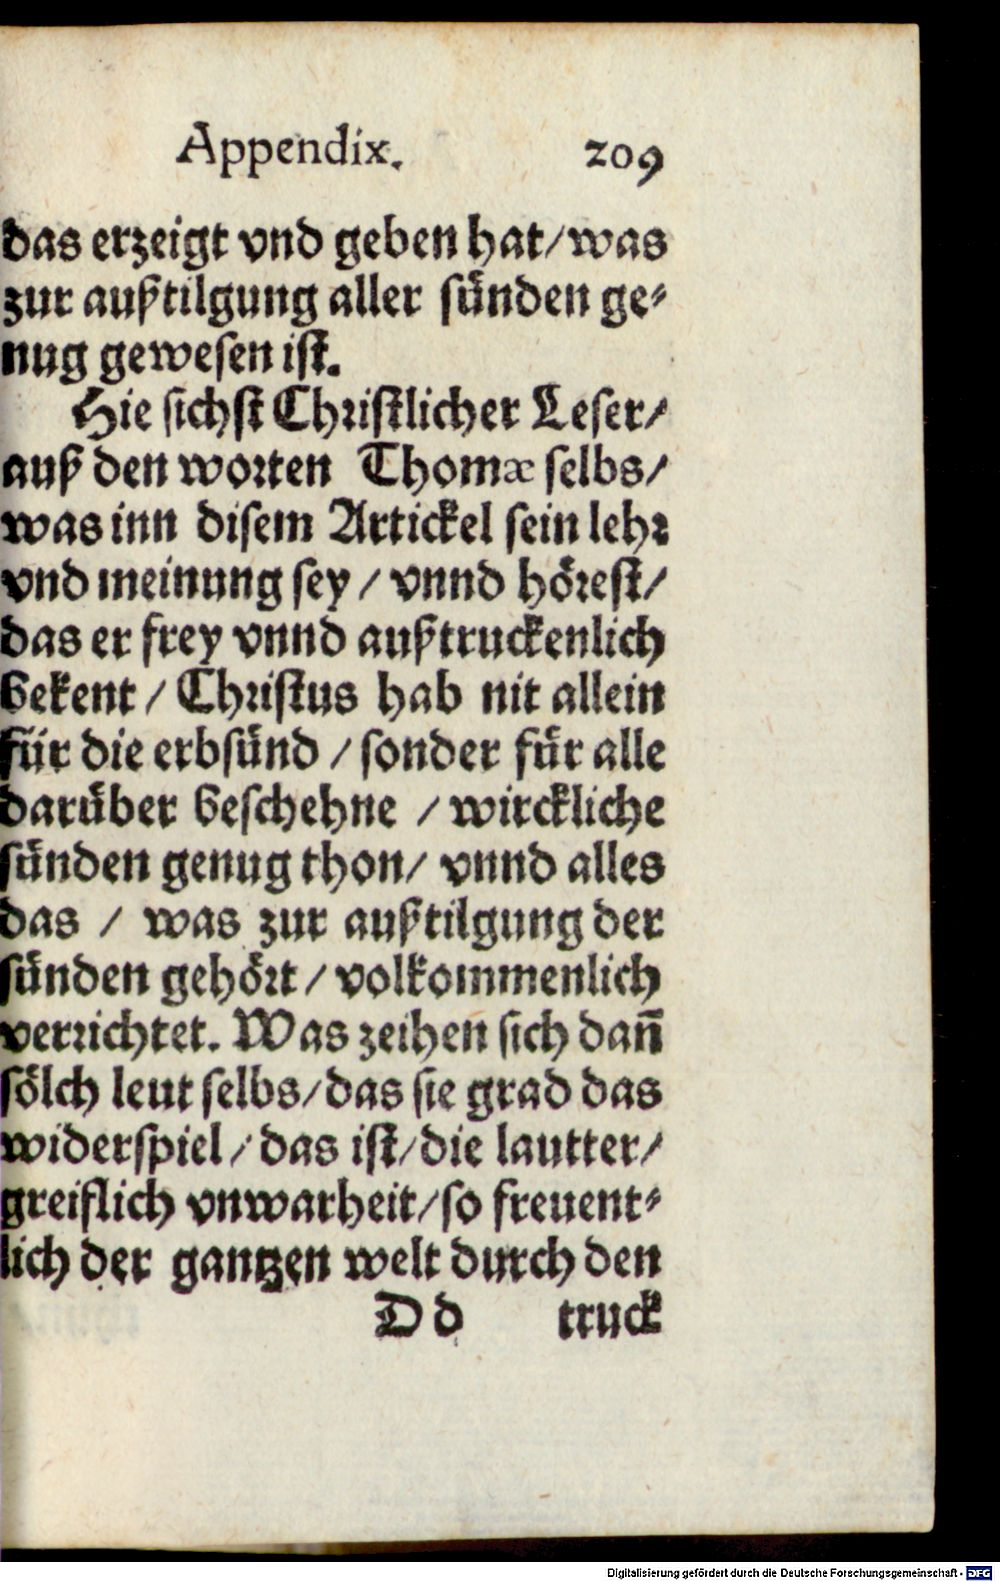 Appendix. 209
das erzeigt vnd geben hat/was
zur außtilgung aller sünden ge⸗
nug gewesen ist.
Hie sichst Christlicher Leser/
auß den worten Thomæ selbs/
was inn disem Artickel sein lehr
vnd meinung sey / vnnd hörest/
das er frey vnnd außtruckenlich
bekent / Christus hab nit allein
für die erbsünd / sonder für alle
darüber beschehne / wirckliche
sünden genug thon/ vnnd alles
das / was zur außtilgung der
sünden gehört / volkommenlich
verrichtet. Was zeihen sich dañ
sölch leut selbs/das sie grad das
widerspiel/ das ist/die lautter/
greiflich vnwarheit/so freuent⸗
lich der gantzen welt durch den
D d truck
Digitalisierung gefördert durch die Deutsche Forschungsgemeinschaft - DFG